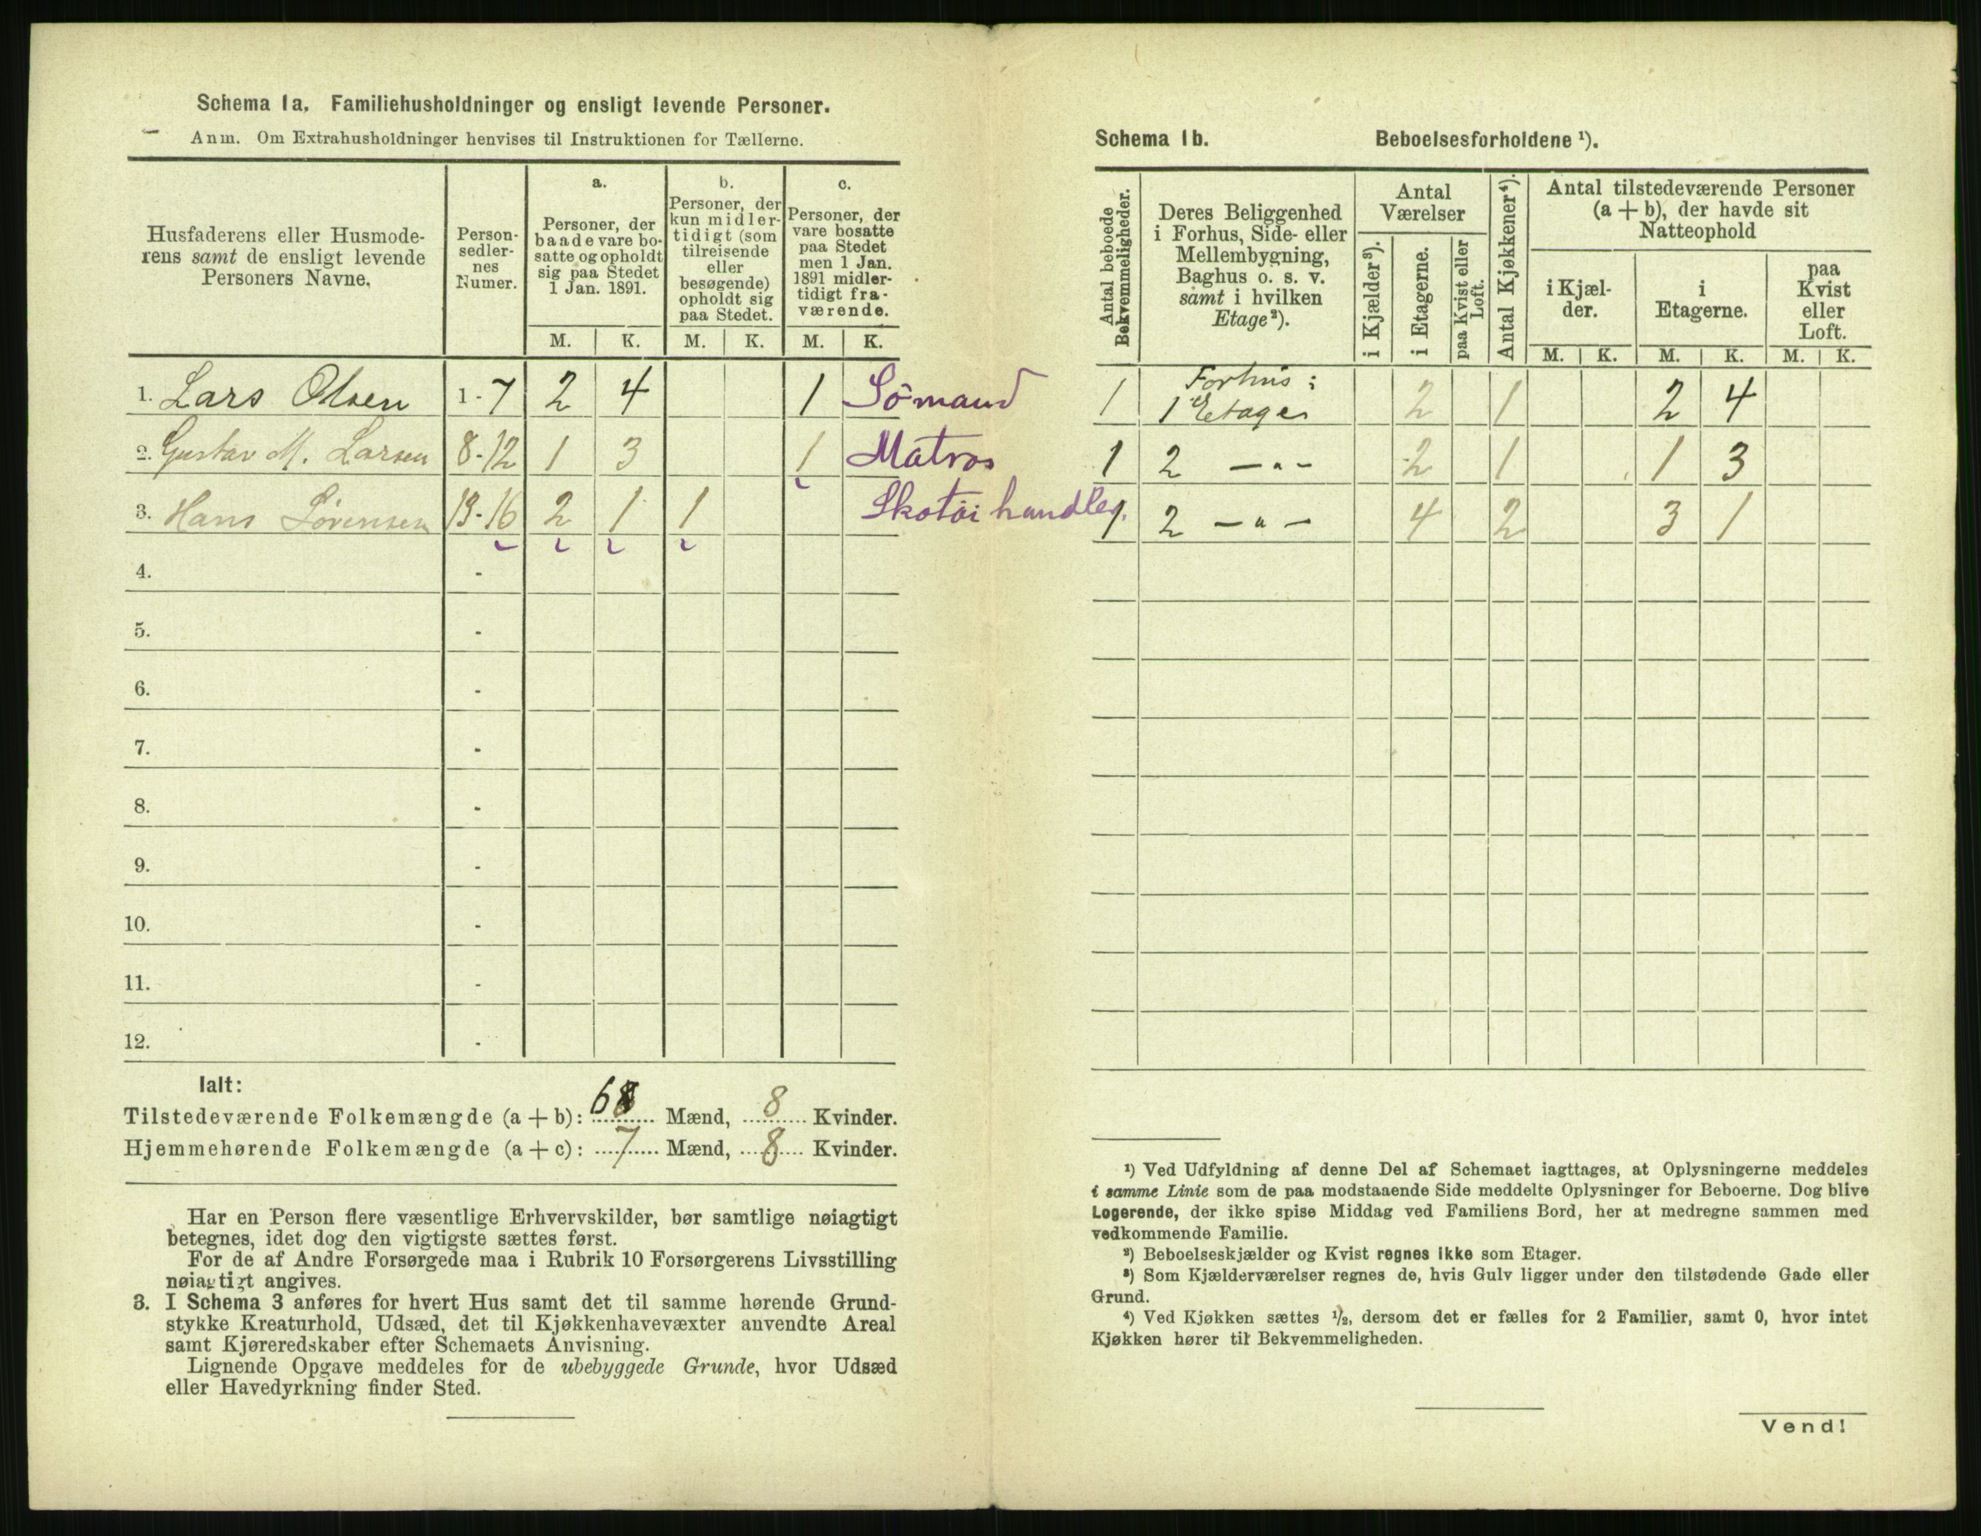 Schema 1a. Familiehusholdninger og ensligt levende Personer.
Anm. Om Extrahusholdninger henvises til Instruktionen for Tællerne.
Husfaderens eller Husmode-
rens samt de ensligt levende
Personers Navne.
Person-
sedler-
nes
Numer.
a.
Personer, der
baade vare bo-
satte og opholdt
sig paa Stedet
1 Jan. 1891.
b.
Personer, der
kun midler-
tidigt (som
tilreisende
eller
besøgende)
opholdt sig
paa Stedet.
c.
Personer, der
vare bosatte
paa Stedet
men 1 Jan.
1891 midler-
tidigt fra-
værende.
M. K. M. K. M. K.
1. Lars Olsen 1-7 2 4 1 Sömand
2. Gustav M. Larsen 8-12 1 3 1 Matros
3. Hans Sørensen 13-16 2 1 1 Skotöihandler.
4. -
5. -
6. -
7. -
8. -
9. -
10. -
11. -
12. -
Ialt:
Tilstedeværende Folkemængde (a + b): 6 Mænd, 8 Kvinder.
Hjemmehørende Folkemængde (a + c): 7 Mænd, 8 Kvinder.
Har en Person flere væsentlige Erhvervskilder, bør samtlige nøiagtigt
betegnes, idet dog den vigtigste sættes først.
For de af Andre Forsørgede maa i Rubrik 10 Forsørgerens Livsstilling
nøiagtigt angives.
3. I Schema 3 anføres for hvert Hus samt det til samme hørende Grund-
stykke Kreaturhold, Udsæd, det til Kjøkkenhavevæxter anvendte Areal
samt Kjøreredskaber efter Schemaets Anvisning.
Lignende Opgave meddeles for de ubebyggede Grunde, hvor Udsæd
eller Havedyrkning finder Sted.
Schema 1b. Beboelsesforholdene ¹).
Antal beboede
Bekvemmeligheder.
Deres Beliggenhed
i Forhus, Side- eller
Mellembygning,
Baghus o. s. v.
samt i hvilken
Etage²).
Antal
Værelser
i Kjælder³).
i Etagerne.
paa Kvist eller
Loft.
Antal Kjøkkener⁴).
Antal tilstedeværende Personer
(a + b), der havde sit
Natteophold
i Kjæl-
der.
i
Etagerne.
paa
Kvist
eller
Loft.
M. K. M. K. M. K.
1 Forhus: 1 Etage 2 1 2 4
1 2 —"— 2 1 1 3
1 2 —"— 4 2 3 1
¹) Ved Udfyldning af denne Del af Schemaet iagttages, at Oplysningerne meddeles
i samme Linie som de paa modstaaende Side meddelte Oplysninger for Beboerne. Dog blive
Logerende, der ikke spise Middag ved Familiens Bord, her at medregne sammen med
vedkommende Familie.
²) Beboelseskjælder og Kvist regnes ikke som Etager.
³) Som Kjælderværelser regnes de, hvis Gulv ligger under den tilstødende Gade eller
Grund.
⁴) Ved Kjøkken sættes ½, dersom det er fælles for 2 Familier, samt 0, hvor intet
Kjøkken hører til Bekvemmeligheden.
Vend!